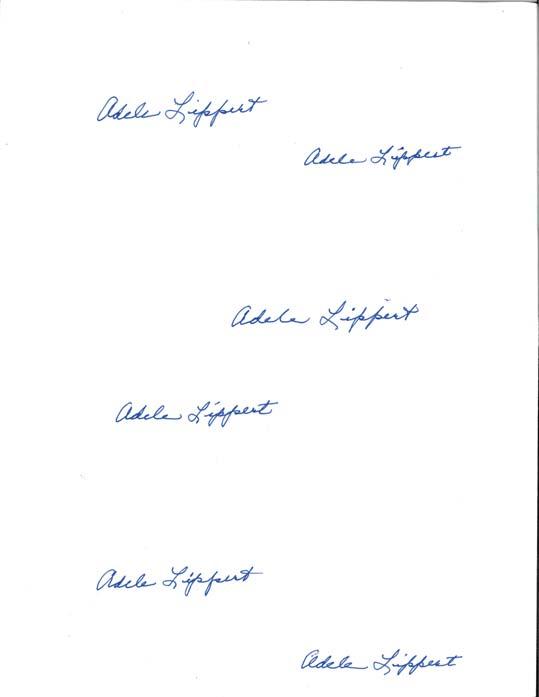 Adele Lippert
Adele Lippert
Adele Lippert
Adele Lippert
Adele Lippert
Adele Lippert